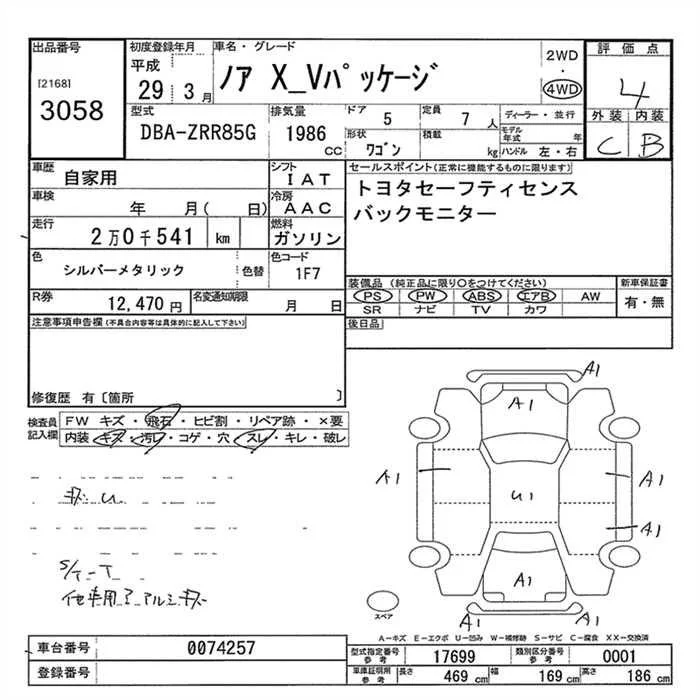 出品番号
[2168]
3058
初度登録年月
平成
29年 3月
車名・グレード
ノア X_Vパッケージ
2WD
・
4WD
評価点
4
外装 内装
C B
型式
DBA-ZRR85G
排気量
1986
CC
ドア 5
定員 7人
形状 ワゴン
積載 kg
ディーラー・並行
モデル年式 年
ハンドル 左・右
車歴 自家用
シフト IAT
車検 年 月( 日)
冷房 AAC
走行 2万0千541 km
燃料 ガソリン
色 シルバーメタリック 色替
色コード 1F7
R券 12,470円
名変通知期限 月 日
セールスポイント(正常に機能するものに限ります)
トヨタセーフティセンス
バックモニター
装備品 (純正品に限り○をつけてください)
PS PW ABS エアB AW
SR ナビ TV カワ
新車保証書
有・無
後日品
注意事項申告欄(不具合内容等は具体的に記入して下さい)
修復歴 有〔箇所 〕
検査員
記入欄
FW キズ・飛石・ヒビ割・リペア跡・×要
内装・キズ・汚レ・コゲ・穴・スレ・キレ・破レ
A1
A1
A1
A1
U1
A1
A1
A1
A1
スペア
A-キズ E-エクボ U-凹み W-補修跡 S-サビ C-腐食 XX-交換済
車台番号 0074257
登録番号
型式指定番号 参考 17699
類別区分番号 参考 0001
車庫証明用 参考 長さ 469 cm 幅 169 cm 高さ 186 cm